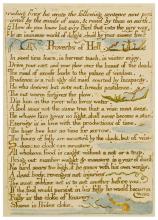 roding fires he wrote the following sentence now per-
cieved by the minds of men, & read by them on earth.
How do you know but ev'ry Bird that cuts the airy way,
Is an immense world of delight, clos'd by your senses five?
Proverbs of Hell
In seed time learn, in harvest teach, in winter enjoy.
Drive your cart and your plow over the bones of the dead.
The road of excess leads to the palace of wisdom.
Prudence is a rich ugly old maid courted by Incapacity.
He who desires but acts not, breeds pestilence.
The cut worm forgives the plow.
Dip him in the river who loves water.
A fool sees not the same tree that a wise man sees.
He whose face gives no light, shall never become a star.
Eternity is in love with the productions of time.
The busy bee has no time for sorrow.
The hours of folly are measur'd by the clock, but of wis-
-dom: no clock can measure.
All wholsom food is caught without a net or a trap.
Bring out number weight & measure in a year of dearth.
No bird soars too high, if he soars with his own wings.
A dead body, revenges not injuries.
The most sublime act is to set another before you.
If the fool would persist in his folly he would become
Folly is the cloke of knavery.
Shame is Prides cloke.